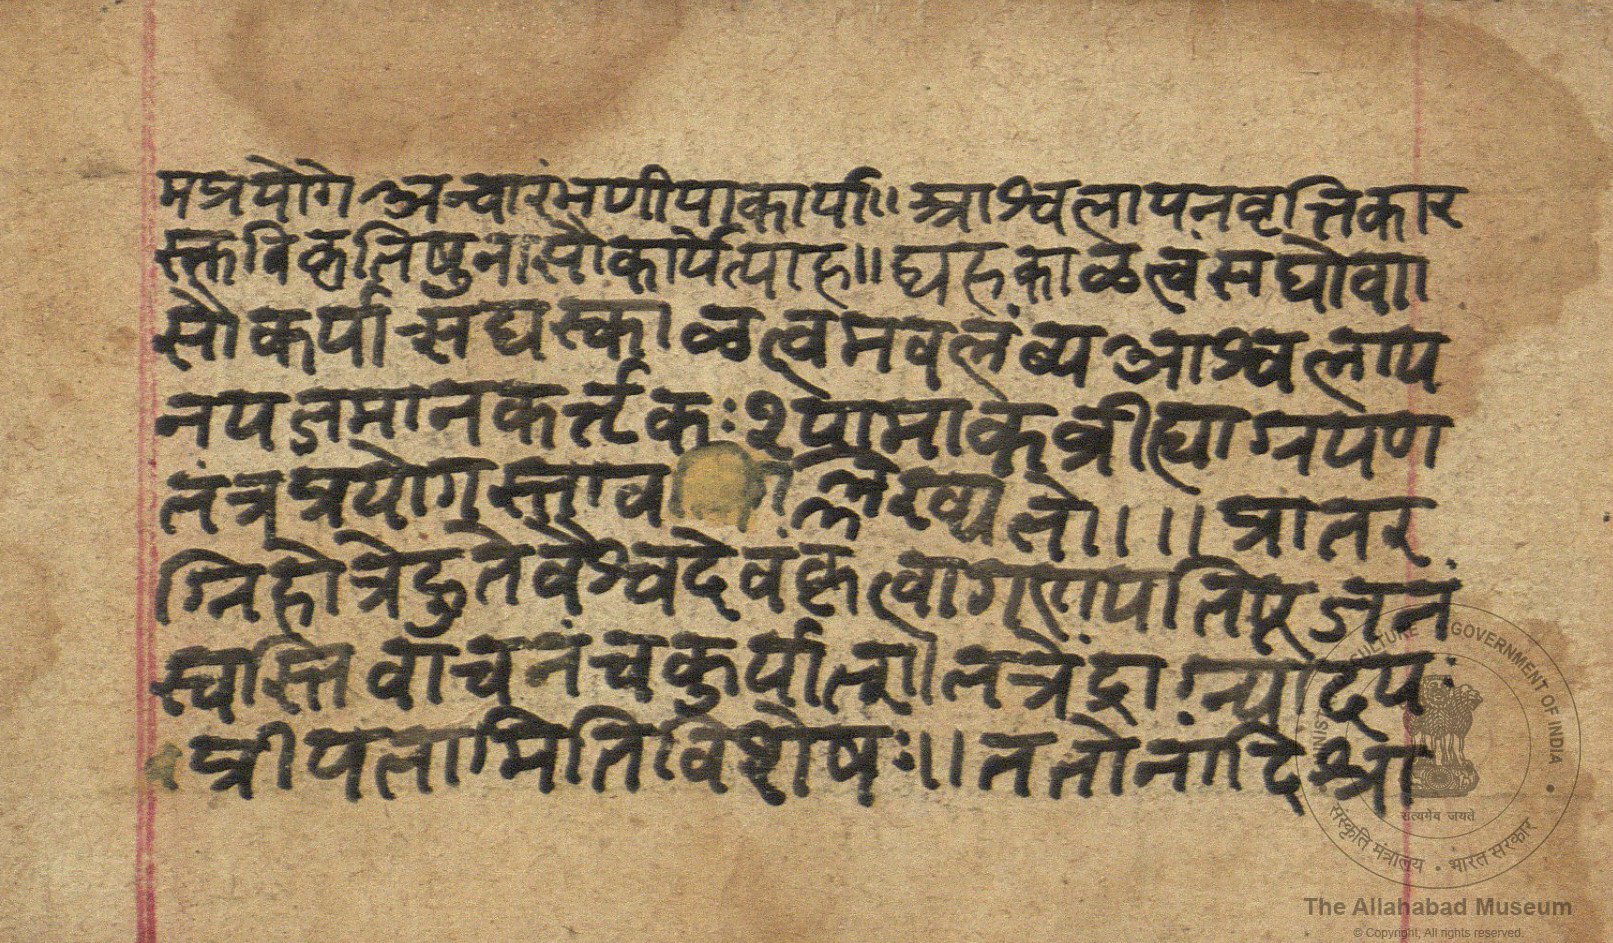 मप्रयोगे अन्वारंभणीयाकार्या॥ आश्वलायनवृत्तिकार
स्त्कविकृतिषुनासौकार्येत्याह॥ द्यहकाळत्वंसद्योवा
सौकर्यात्सद्यस्काळत्वमवलंब्य आश्वलाय
नयजमानकर्त्तृकः श्यामाकव्रीह्याग्रयण
तंत्रप्रयोगस्ताव ल्लेख्यते॥॥ प्रातर
ग्निहोत्रेहुतेवैश्वदेवंकृत्वागणपतिपूजनं
स्वस्तिवाचनंचकुर्यात् तत्रेंद्राग्न्यादयः
प्रीयंतामितिविशेषः॥ ततोनांदिश्रा
सत्यमेव जयते
संस्कृति मंत्रालय • भारत सरकार
MINISTRY OF CULTURE GOVERNMENT OF INDIA
The Allahabad Museum
© Copyright, All rights reserved.